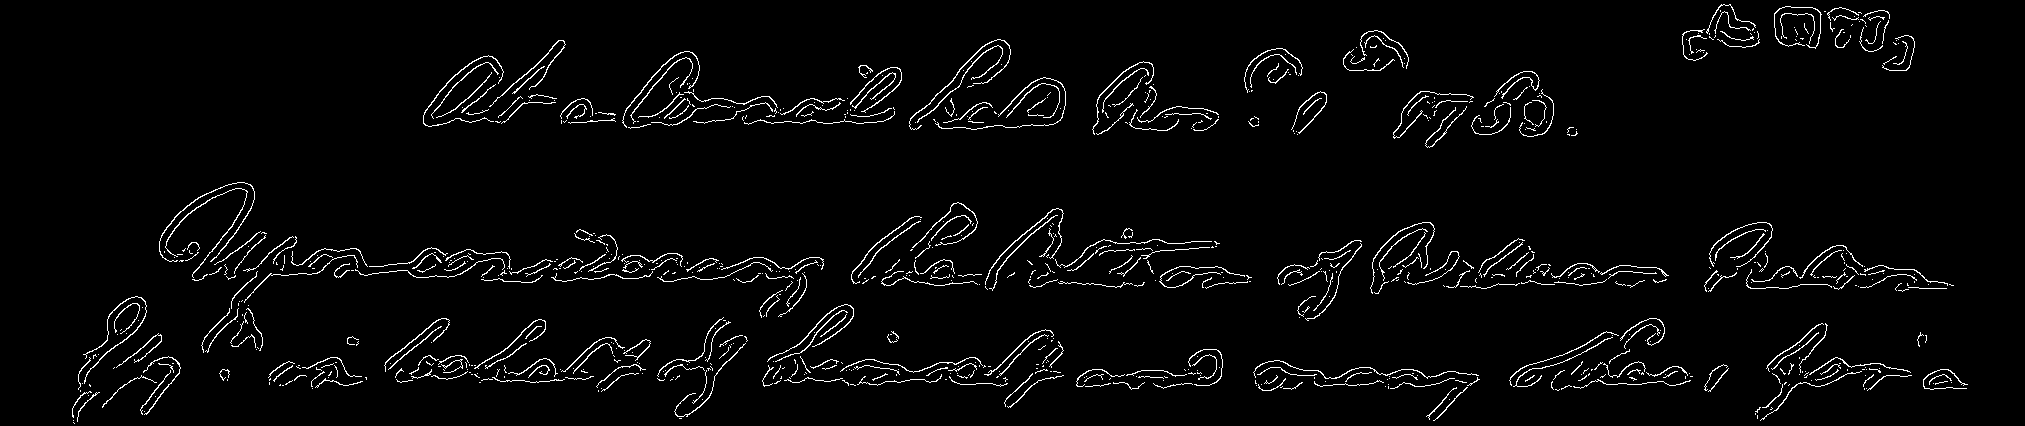 At a Council held Nov.r 1st
Upon considering the Petition of William
Esqr. in behalf of himself and many others, for a